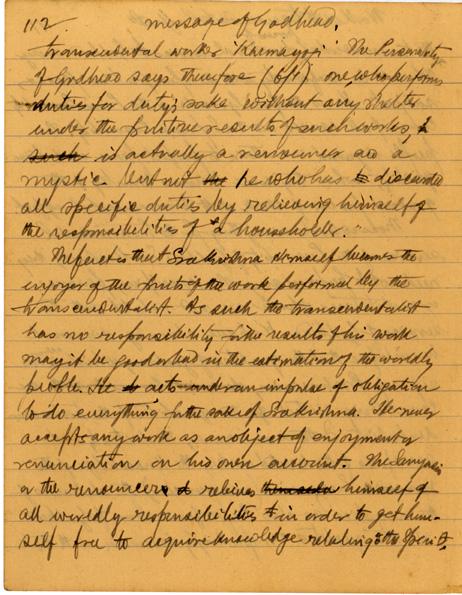 112 message of Godhead.
transcendental worker 'Karmayogi'. The Personality
of Godhead says therefore (6/1) one, who performs
duties for duty's sake without any shelter
under the fruitive results of such works,
such is actually a renouncer and a
mystic. but not the he who has discarded
all specific duties by relieving himself of
the responsibilities of a householder."
The fact is that Srikrishna Himself becomes the
enjoyer of the fruits of the work performed by the
transcendentalist. As such the transcendentalist
has no responsibility for the results of his work
may it be good or bad in the estimation of the worldly
people. He acts under an impulse of obligation
to do everything for the sake of Srikrishna. He never
accepts any work as an object of enjoyment or
renunciation on his own account. The Sanyasi
or the renouncer relieves himself of
all worldly responsibilities in order to get him-
self free to acquire knowledge relating to the Spirit.